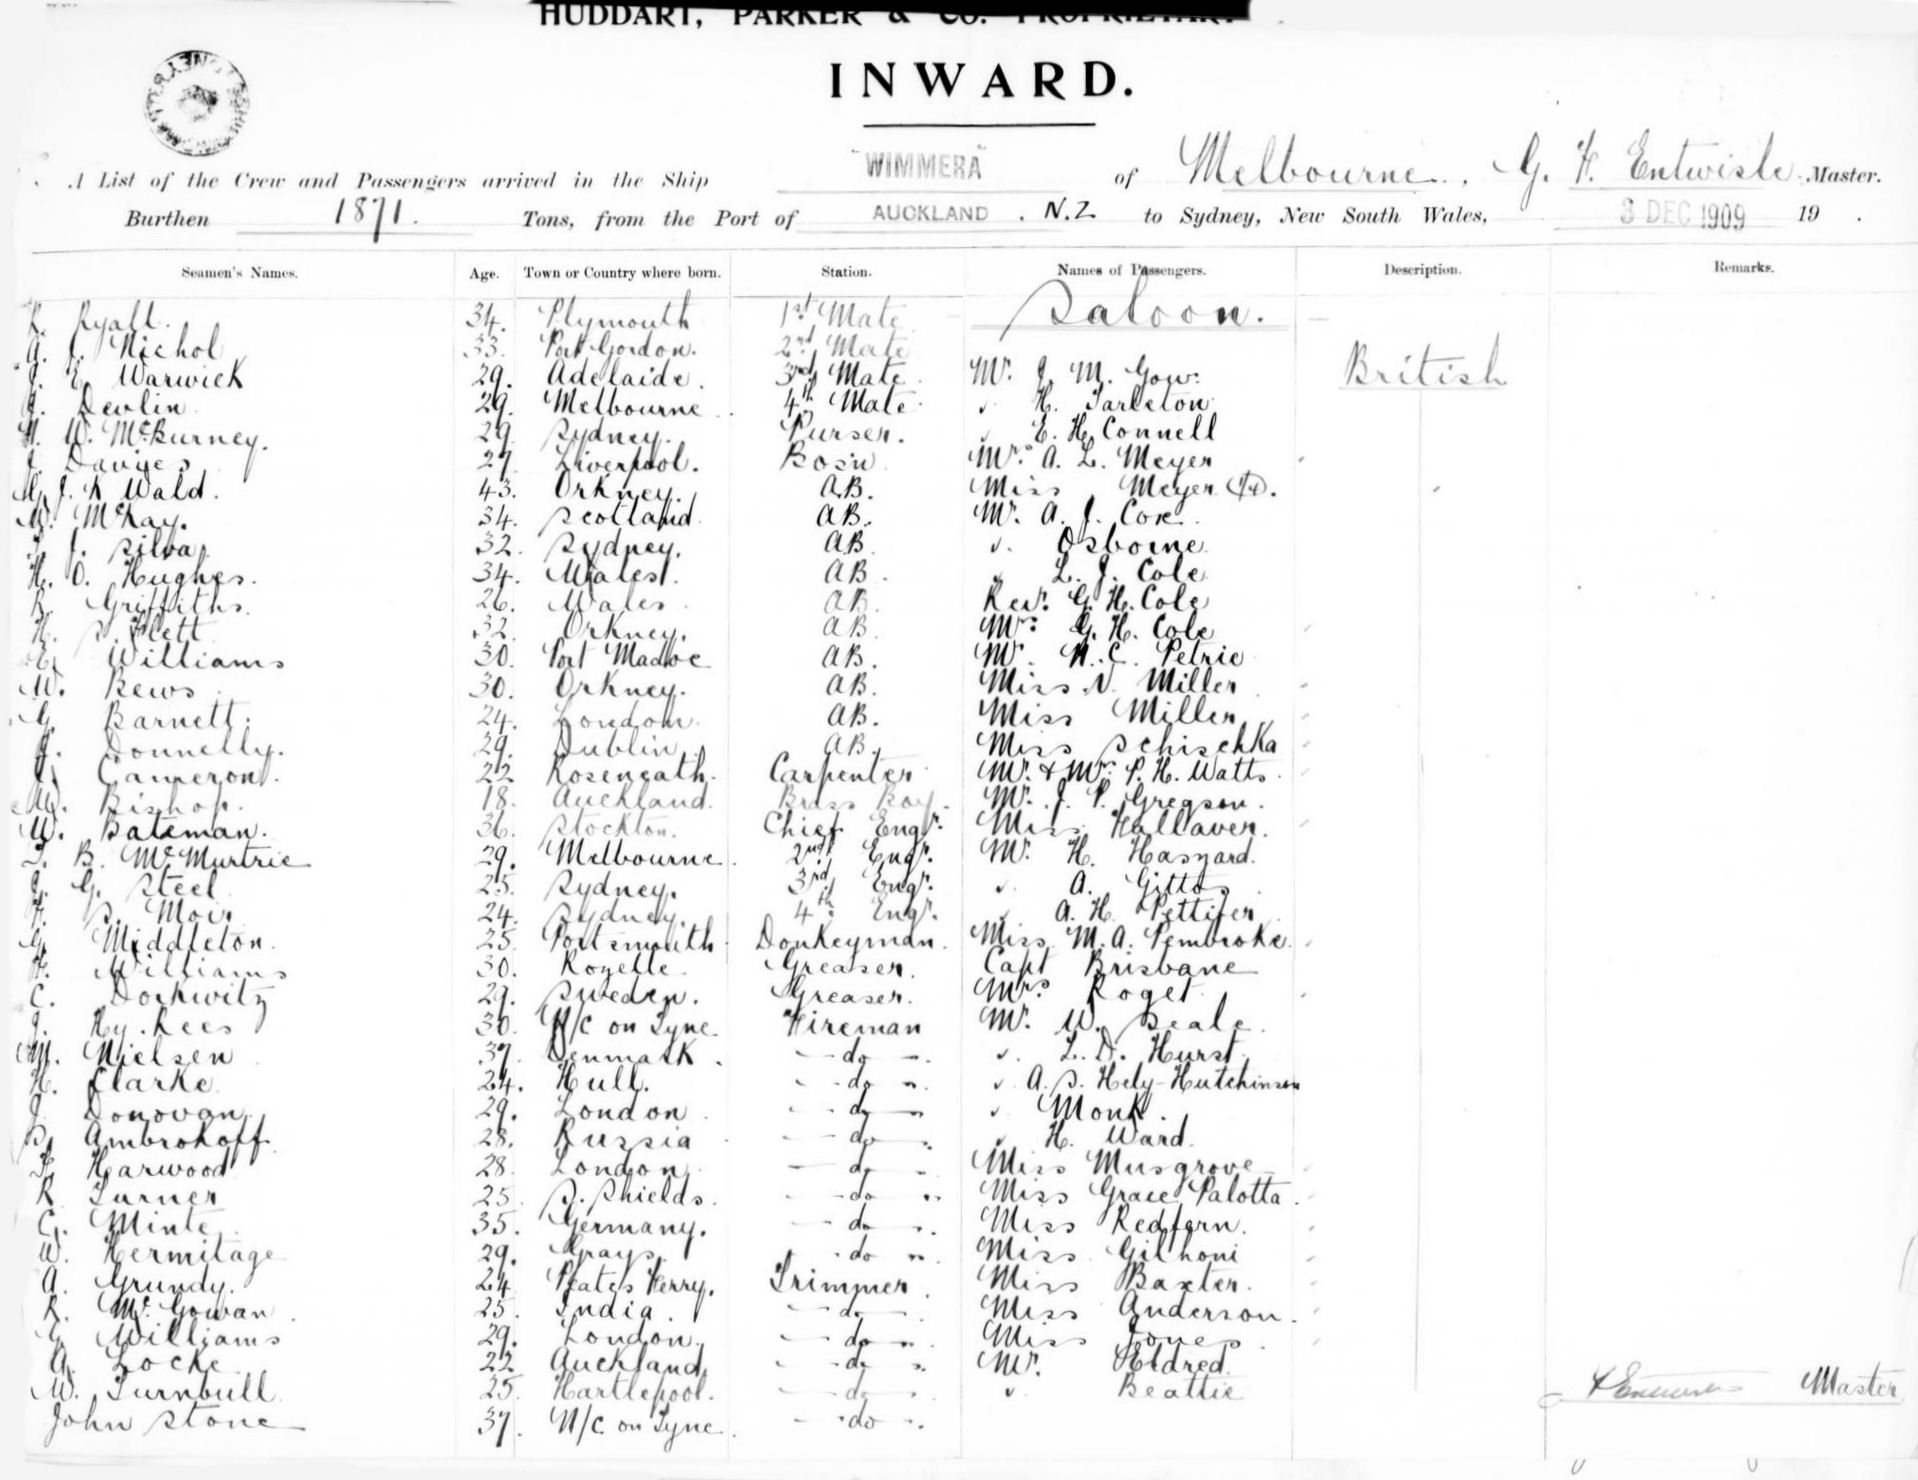 HUDDART, PARKER & CO. PROPRIETARY
INWARD.
A List of the Crew and Passengers arrived in the Ship "WIMMERA" of Melbourne, G. F. Entwisle Master.
Burthen 1871. Tons, from the Port of AUCKLAND. N.Z to Sydney, New South Wales, 3 DEC 1909 19 .
Seamen's Names. Age. Town or Country where born. Station. Names of Passengers. Description. Remarks.
R. Ryall. 34. Plymouth 1st Mate Saloon.
A. J. Nichol 33. Port Gordon. 2nd Mate
J. E. Warwick 29. Adelaide. 3rd Mate Mr. J. M. Gow. British
J. Devlin 29. Melbourne 4th Mate " H. Tarleton
W. McBurney. 29. Sydney. Purser. " E. H. Connell
J. Davies 27. Liverpool. Bosn Mrs. A. L. Meyer
J. K Wald. 43. Orkney. AB. Miss Meyer (14).
W. McKay. 34. Scotland AB. Mr. A. J. Cox.
J. Silva 32. Sydney. AB. " Osborne
H. O. Hughes. 34. Wales. AB. " L. J. Cole
R. Griffiths. 26. Wales AB. Rev. G. H. Cole
H. S. Flett 32. Orkney. AB. Mrs. G. H. Cole
E. Williams 30. Port Madoc AB. Mr. N. C. Petrie
W. Bews 30. Orkney. AB. Miss N. Miller
G. Barnett. 24. London. AB. Miss Miller
J. Donnelly. 29. Dublin AB. Miss Schischka
Cameron. 22 Roseneath. Carpenter Mr. & Mrs. P. H. Watts
W. Bishop. 18. Auckland. Brass Boy. Mr. J. P. Gregson.
W. Bateman. 36. Stockton. Chief Engr. Miss Hallaven.
T. B. McMurtrie 29. Melbourne. 2nd Engr. Mr. H. Haszard.
J. G. Steel 25. Sydney. 3rd Engr. " A. Gittos
H. S. Moir 24. Sydney. 4th Engr. " A. H. Pettifer
G. Middleton. 25. Portsmouth Donkeyman. Miss M. A. Pembroke.
H. Williams 30. Rozelle. Greaser. Capt Brisbane
C. Dorkwitz 29. Sweden. Greaser. Mrs Roget
J. Hy. Rees 30. N/C on Tyne. Fireman Mr. W. Seale.
M. Nielsen 37. Denmark. - do - " L. D. Hurst
H. Clarke 24. Hull. - do - " A. S. Hely-Hutchinson
J. Donovan 29. London - do - " Monk.
S. Ambrokoff 28. Russia - do - " H. Ward.
F. Harwood 28. London - do - Miss Musgrove
R. Turner 25. S. Shields. - do - Miss Grace Palotta.
C. Minte 35. Germany. - do - Miss Redfern.
W. Hermitage 29. Grays. - do - Miss Gilhoni
A. Grundy. 24 Ferry. Trimmer. Miss Baxter.
R. McGowan 25. India. - do - Miss Anderson.
E. Williams 29. London. - do - Miss Jones
A. Locke 22. Auckland. - do - Mr. Eldred.
W. Turnbull 25. Hartlepool. - do - " Beattie
John Stone 37. N/C on Tyne - do -
Master